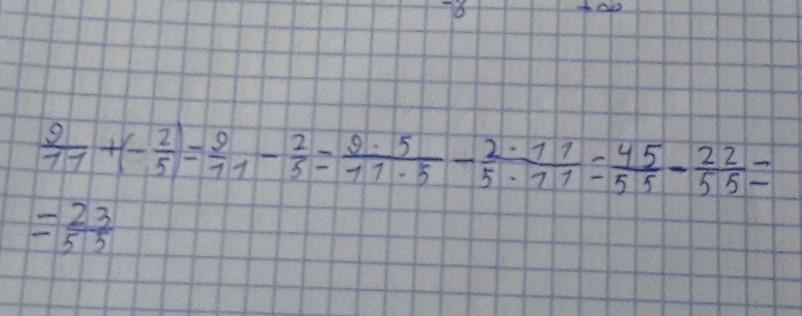 -8 +∞
9/11 + (-2/5) = 9/11 - 2/5 = 9·5/11·5 - 2·11/5·11 = 45/55 - 22/55 =
= 23/55